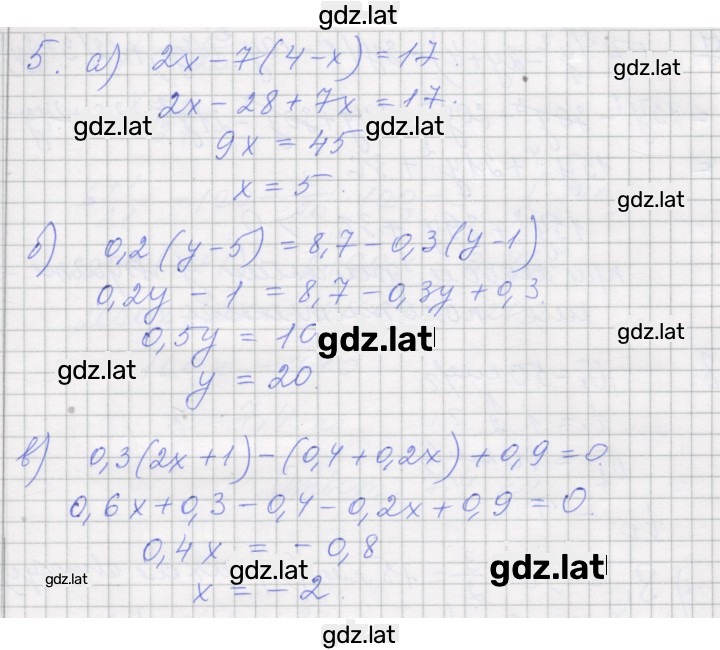 gdz.lat
5. а) 2x - 7(4 - x) = 17
gdz.lat
2x - 28 + 7x = 17.
gdz.lat gdz.lat
9x = 45
x = 5.
gdz.lat
б) 0,2(y - 5) = 8,7 - 0,3(y - 1)
0,2y - 1 = 8,7 - 0,3y + 0,3.
0,5y = 10
gdz.lat gdz.lat
gdz.lat
y = 20.
в) 0,3(2x + 1) - (0,4 + 0,2x) + 0,9 = 0.
0,6x + 0,3 - 0,4 - 0,2x + 0,9 = 0.
0,4x = - 0,8
gdz.lat gdz.lat gdz.lat
x = - 2.
gdz.lat